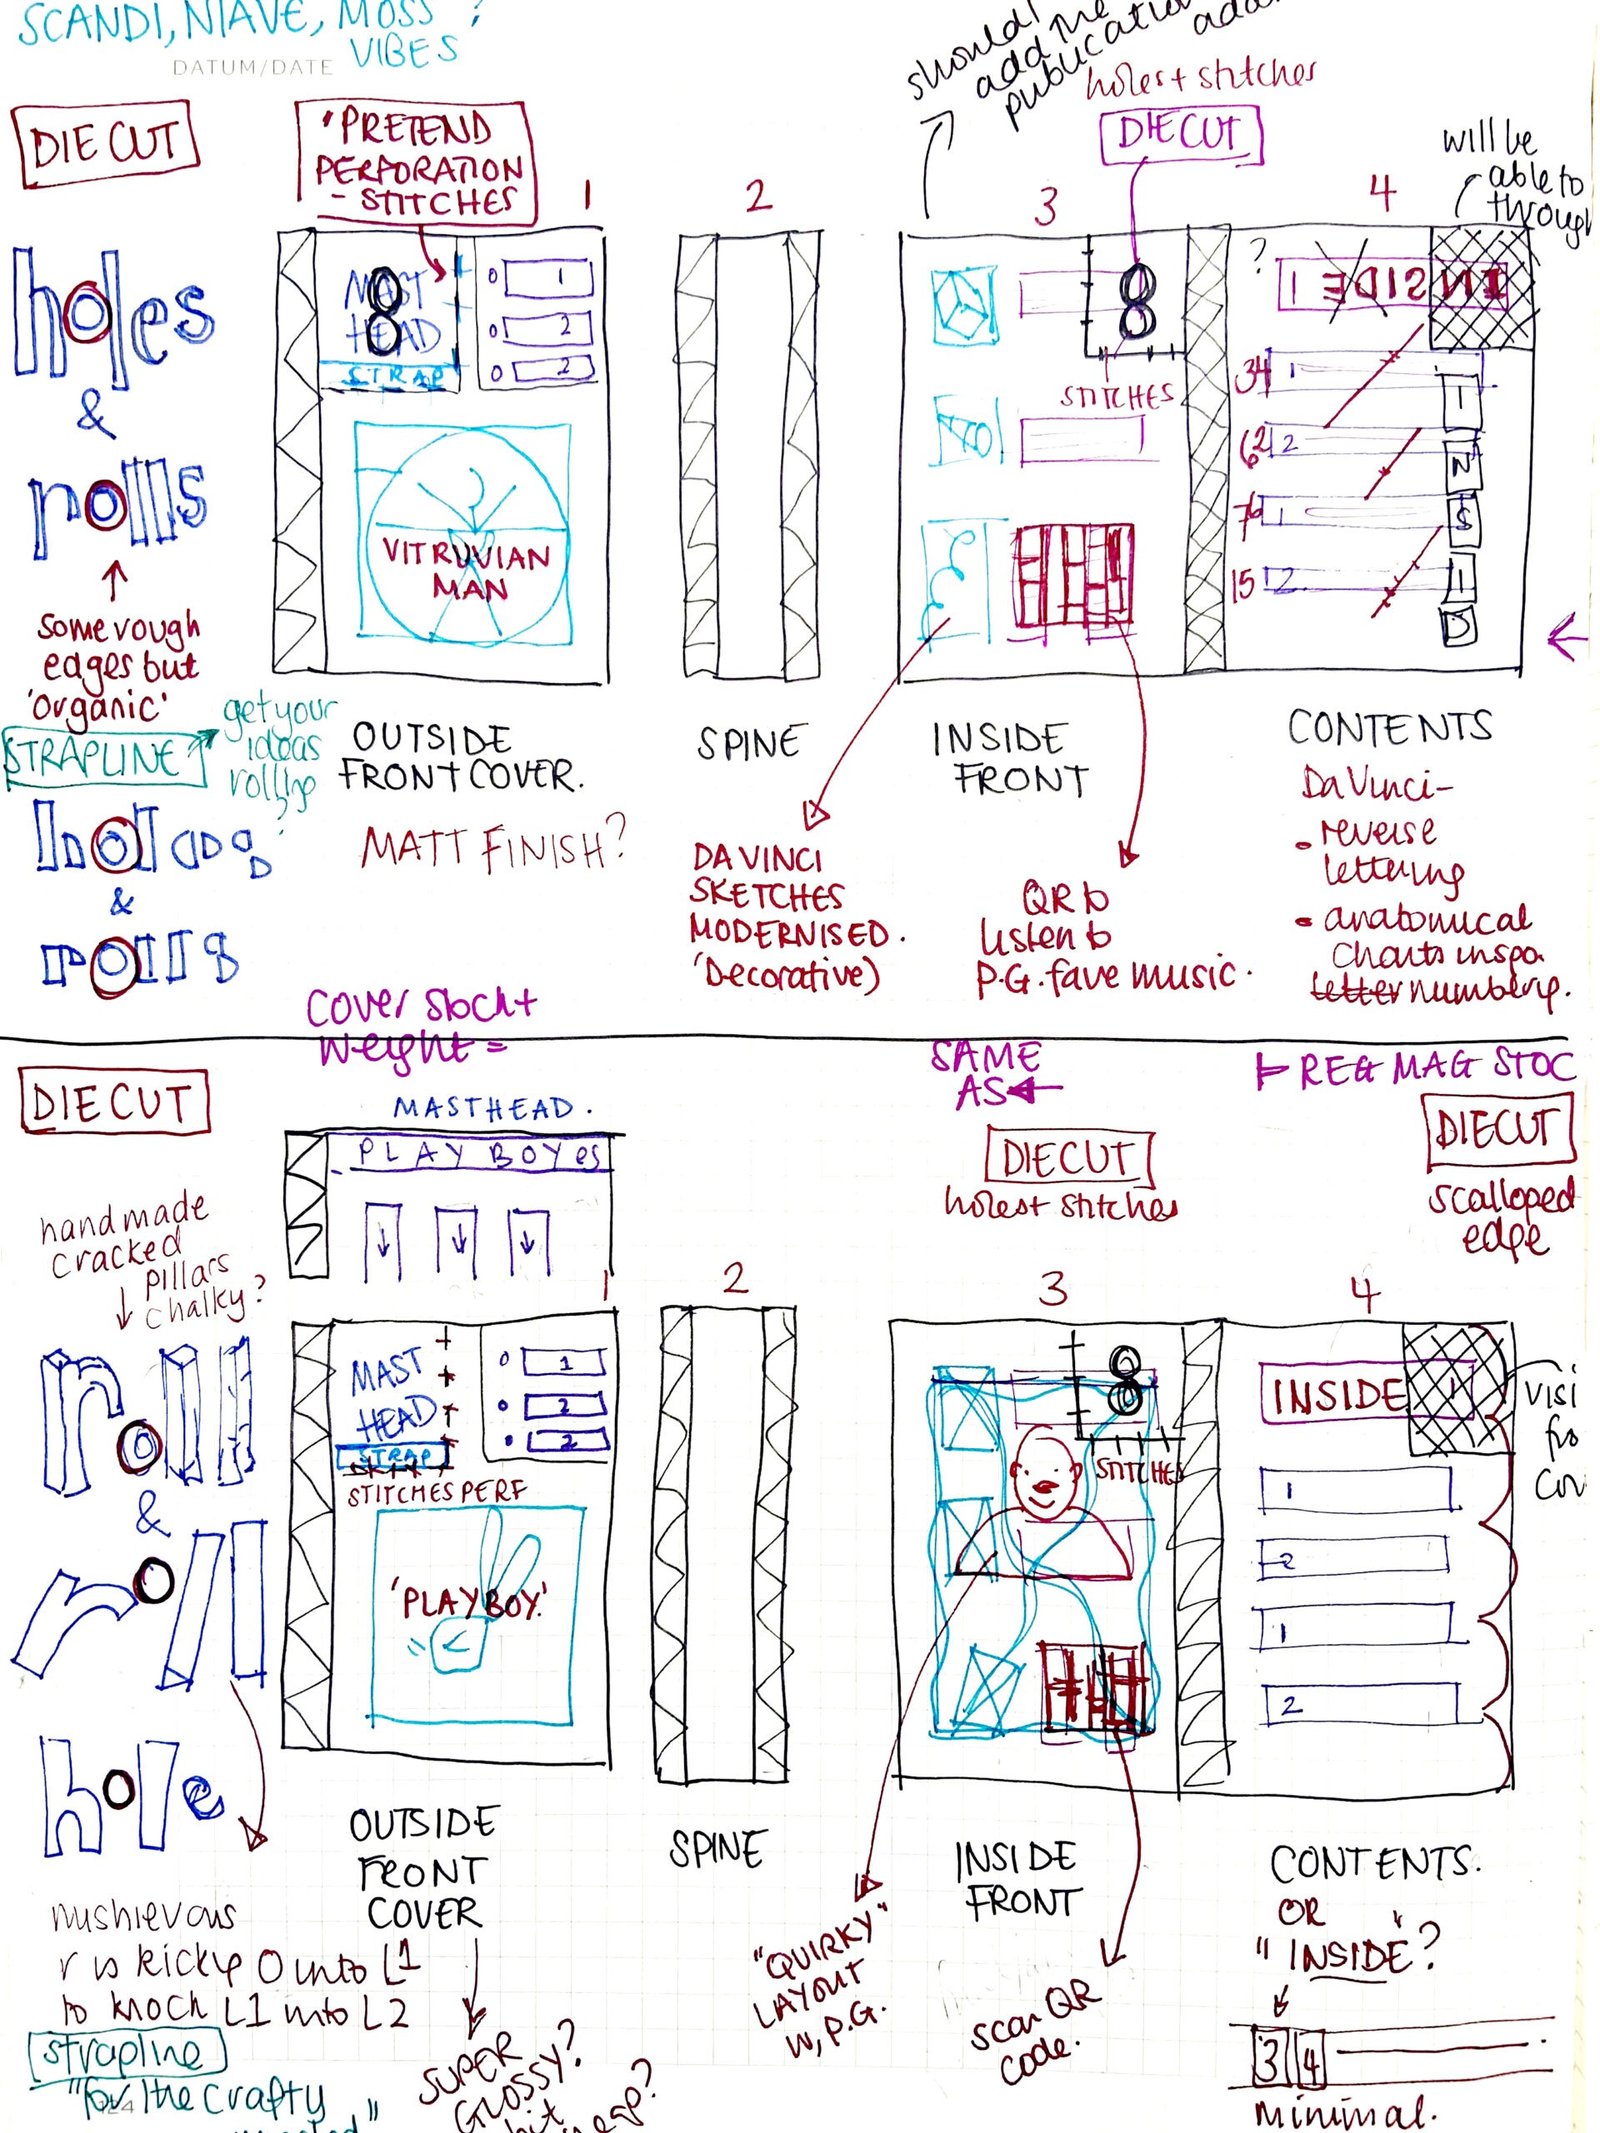 SCANDI, NIAVE, MOSS ?
VIBES
DATUM/DATE
should I
add the
publication
holes + stitches
DIE CUT
DIE CUT
'PRETEND
PERFORATION
- STITCHES
will be
able to
through
1
2
3
4
holes
&
rolls
MAST
HEAD
STRAP
1
2
2
8
STITCHES
?
1
INSIDE
34
1
62
2
76
1
15
2
I
N
S
I
D
VITRUVIAN
MAN
some rough
edges but
'organic'
STRAPLINE
get your
ideas
rolling
?
OUTSIDE
FRONT COVER.
SPINE
INSIDE
FRONT
CONTENTS
MATT FINISH?
Da Vinci-
• reverse
lettering
• anatomical
charts inspo
letter numbering.
DA VINCI
SKETCHES
MODERNISED.
'Decorative)
QR to
listen to
P.G. fave music.
&
rolls
Cover stock +
weight =
SAME
AS
REG MAG STOC
DIECUT
MASTHEAD.
PLAY BOYes
DIECUT
holes + stitches
DIECUT
scalloped
edge
handmade
cracked
pillars
chalky?
1
2
3
4
roll
&
roll
hole
MAST
HEAD
STRAP
1
2
2
STITCHES PERF
'PLAYBOY.'
8
STITCHES
INSIDE
1
1
2
1
2
visi
fro
cov
OUTSIDE
FRONT
COVER
SPINE
INSIDE
FRONT
CONTENTS.
OR
"INSIDE"?
mishievous
r is kicking O into L1
to knock L1 into L2
strapline
"for the crafty
SUPER
GLOSSY?
bit
"QUIRKY"
LAYOUT
w, P.G.
scan QR
code.
3 4
minimal.